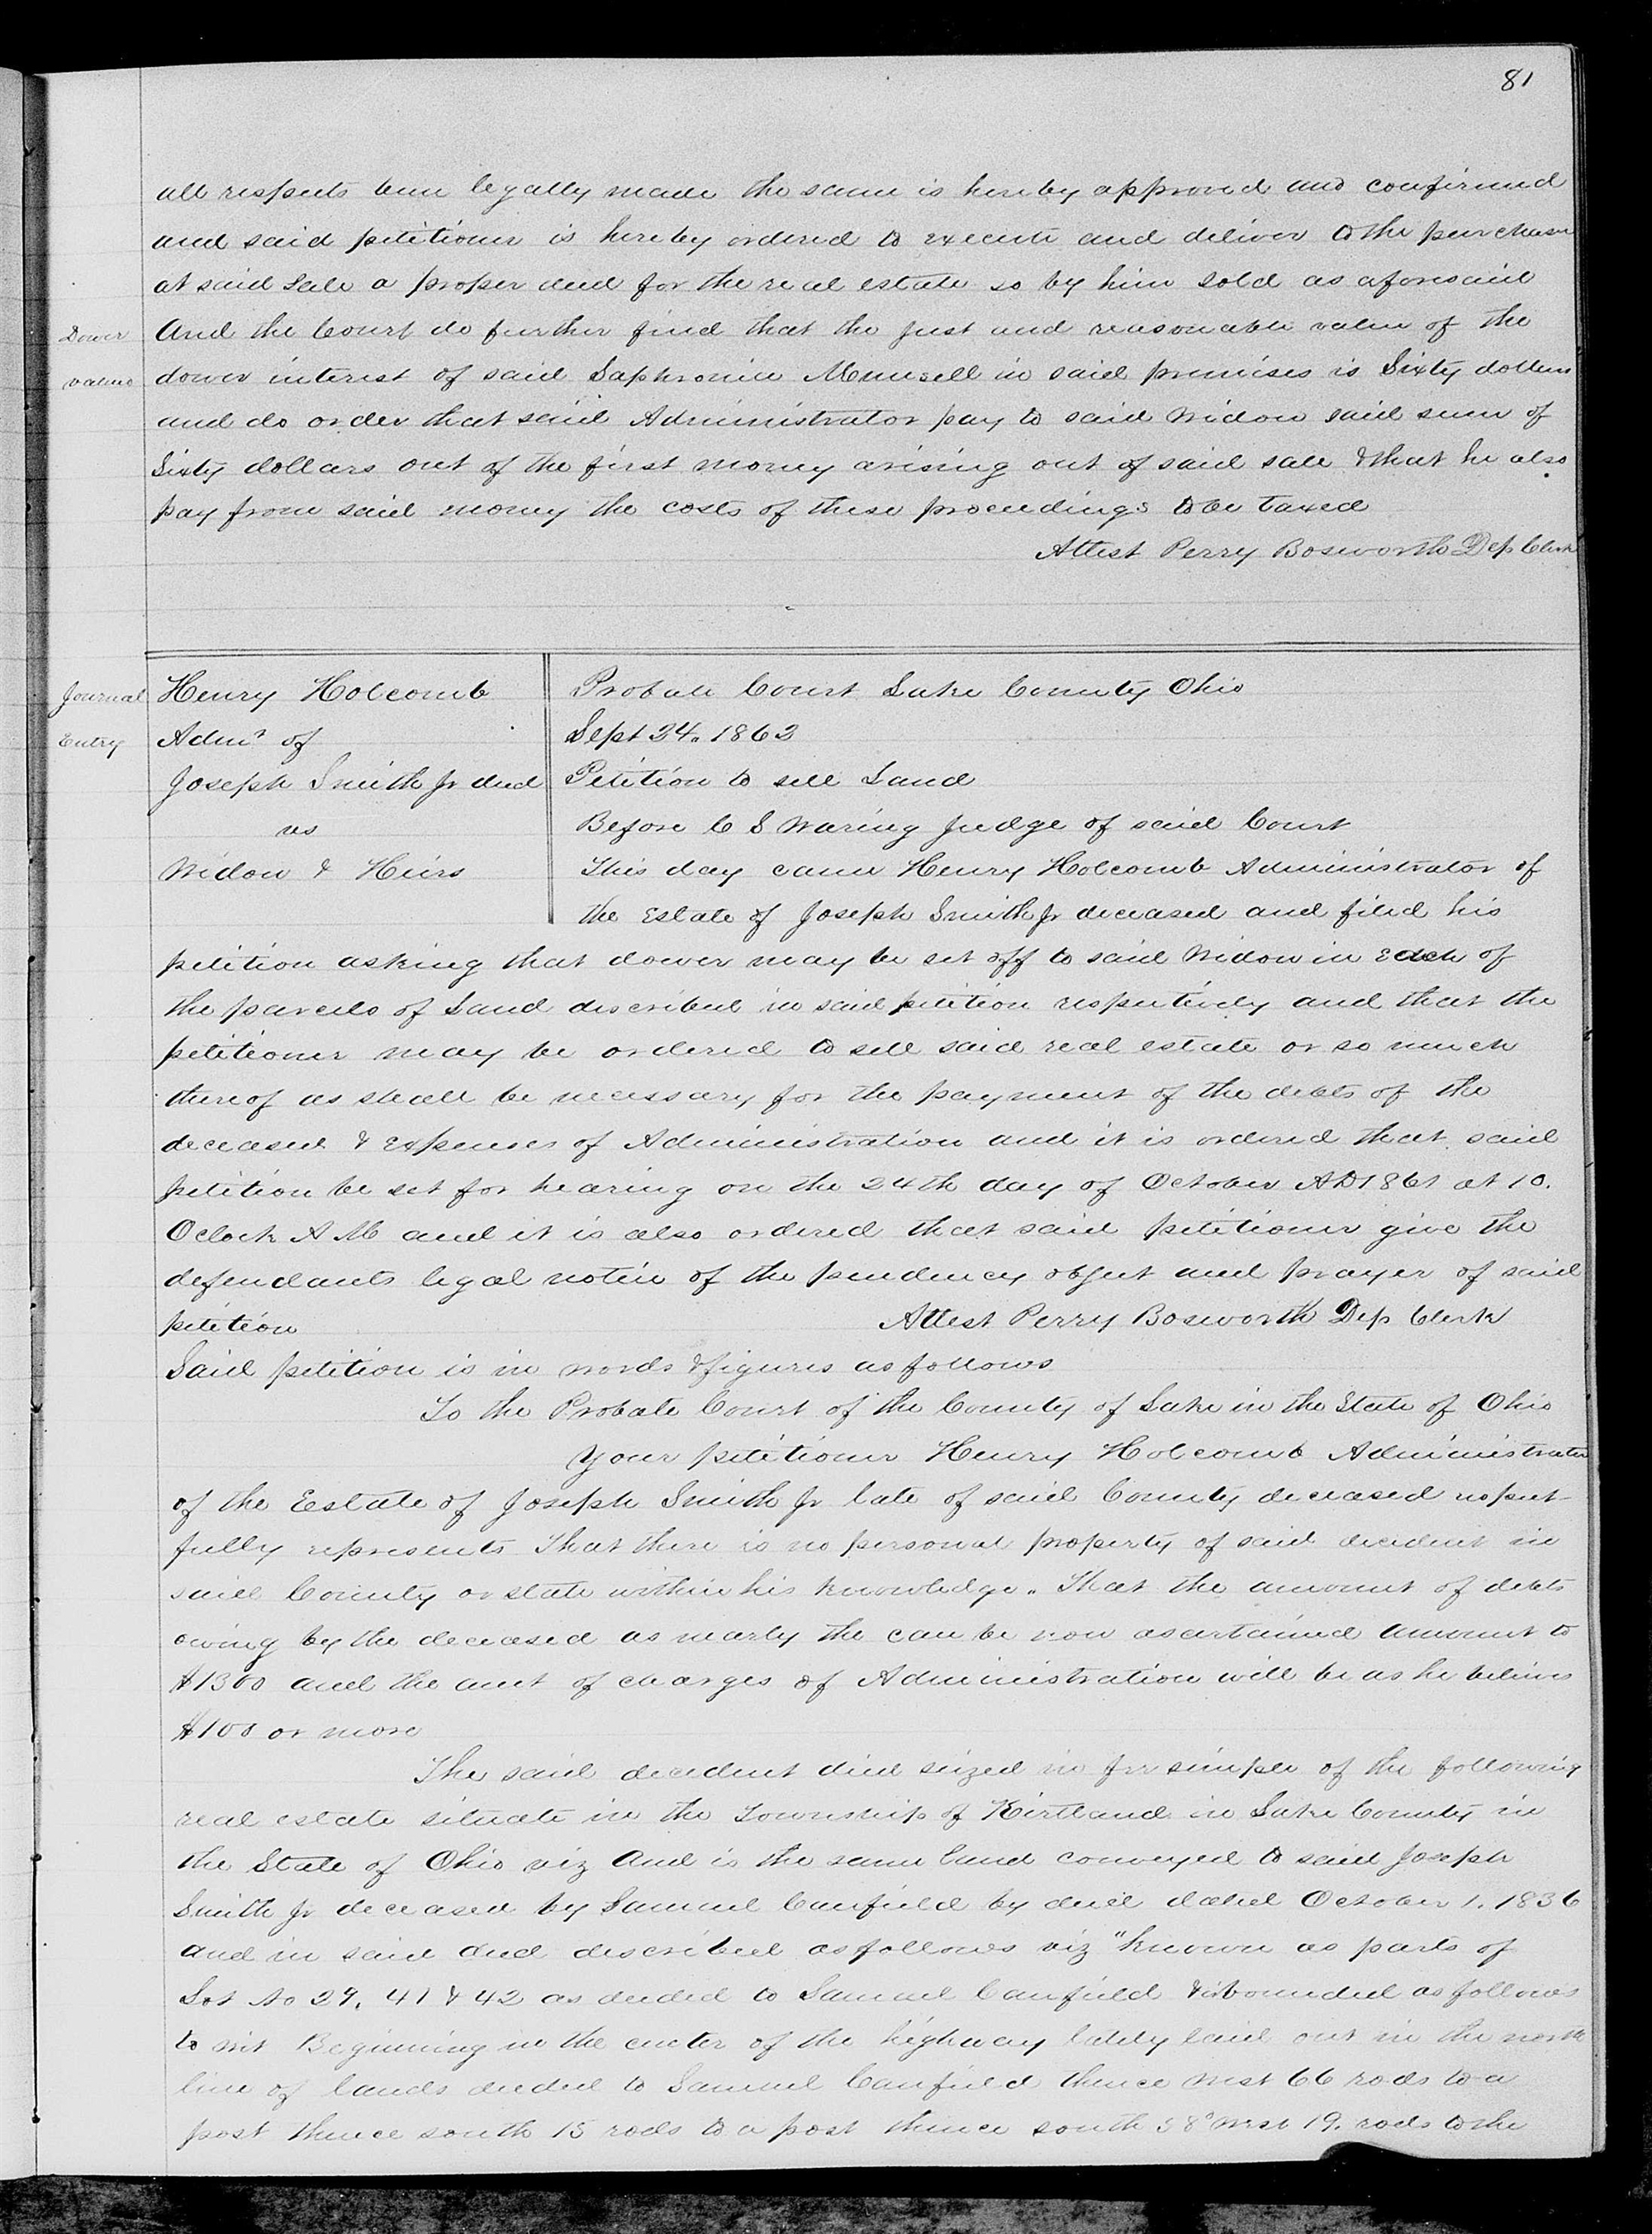 81
all respects been legally made the same is hereby approved and confirmed
and said petitioner is hereby ordered to execute and deliver to the purchaser
at said Sale a proper deed for the real estate so by him sold as aforesaid
Dower And the Court do further find that the just and reasonable value of the
value dower interest of said Saphronia Munsell in said premises is Sixty dollars
and do order that said Administrator pay to said Widow said sum of
Sixty dollars out of the first money arising out of said sale & that he also
pay from said money the costs of these proceedings to be taxed
Attest Perry Bosworth Dep Clerk
Journal Entry
Henry Holcomb
Admr of
Joseph Smith Jr decd
vs
Widow & Heirs
Probate Court Lake County Ohio
Sept 24. 1862
Petition to sell Land
Before C S Waring Judge of said Court
This day came Henry Holcomb Administrator of
the Estate of Joseph Smith Jr deceased and filed his
petition asking that dower may be set off to said Widow in Each of
the parcels of Land described in said petition respectively and that the
petitioner may be ordered to sell said real estate or so much
thereof as shall be necessary for the payment of the debts of the
deceased & expenses of Administration and it is ordered that said
petition be set for hearing on the 24th day of October AD 1861 at 10.
Oclock A M and it is also ordered that said petitioner give the
defendants legal notice of the pendency object and prayer of said
petition Attest Perry Bosworth Dep Clerk
Said petition is in words & figures as follows
To the Probate Court of the County of Lake in the State of Ohio
Your petitioner Henry Holcomb Administrator
of the Eestate of Joseph Smith Jr late of said County deceased respect-
fully represents That there is no personal property of said decedent in
said County or state within his knowledge. That the amount of debts
owing by the deceased as nearly the can be now ascertained amount to
$1300 and the amt of charges of Administration will be as he believes
$100 or more
The said decedent died seized in fee simple of the following
real estate situate in the Township of Kirtland in Lake County in
the State of Ohio viz And is the same land conveyed to said Joseph
Smith Jr deceased by Samuel Canfield by deed dated October 1. 1836
and in said deed described as follows viz "known as parts of
Lot No 29. 41 & 42 as deeded to Samuel Canfield & is bounded as follows
to wit Beginning in the center of the highway lately laid out in the north
line of lands deeded to Samuel Canfield thence west 66 rods to a
post thence south 15 rods to a post thence south 38° West 19. rods to the